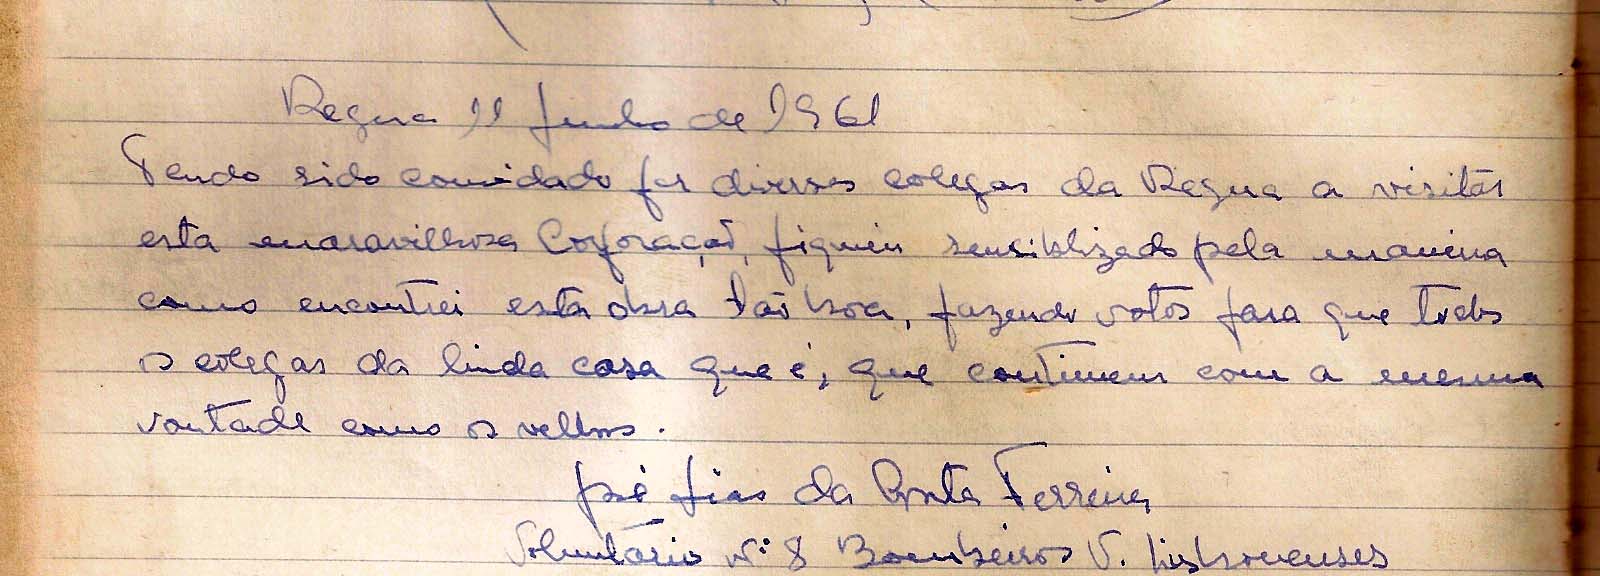 Regua 11 Junho de 1961
Tendo sido convidado por diversos colegas da Regua a visitar
esta maravilhosa Corporação, fiquei sensiblizado pela maneira
como encontrei esta obra tão boa, fazendo votos para que todos
os colegas da linda casa que é, que continuem com a mesma
vontade como os velhos.
José da Costa Ferreira
Voluntário Nº 8 Bombeiros V. Lisbonenses